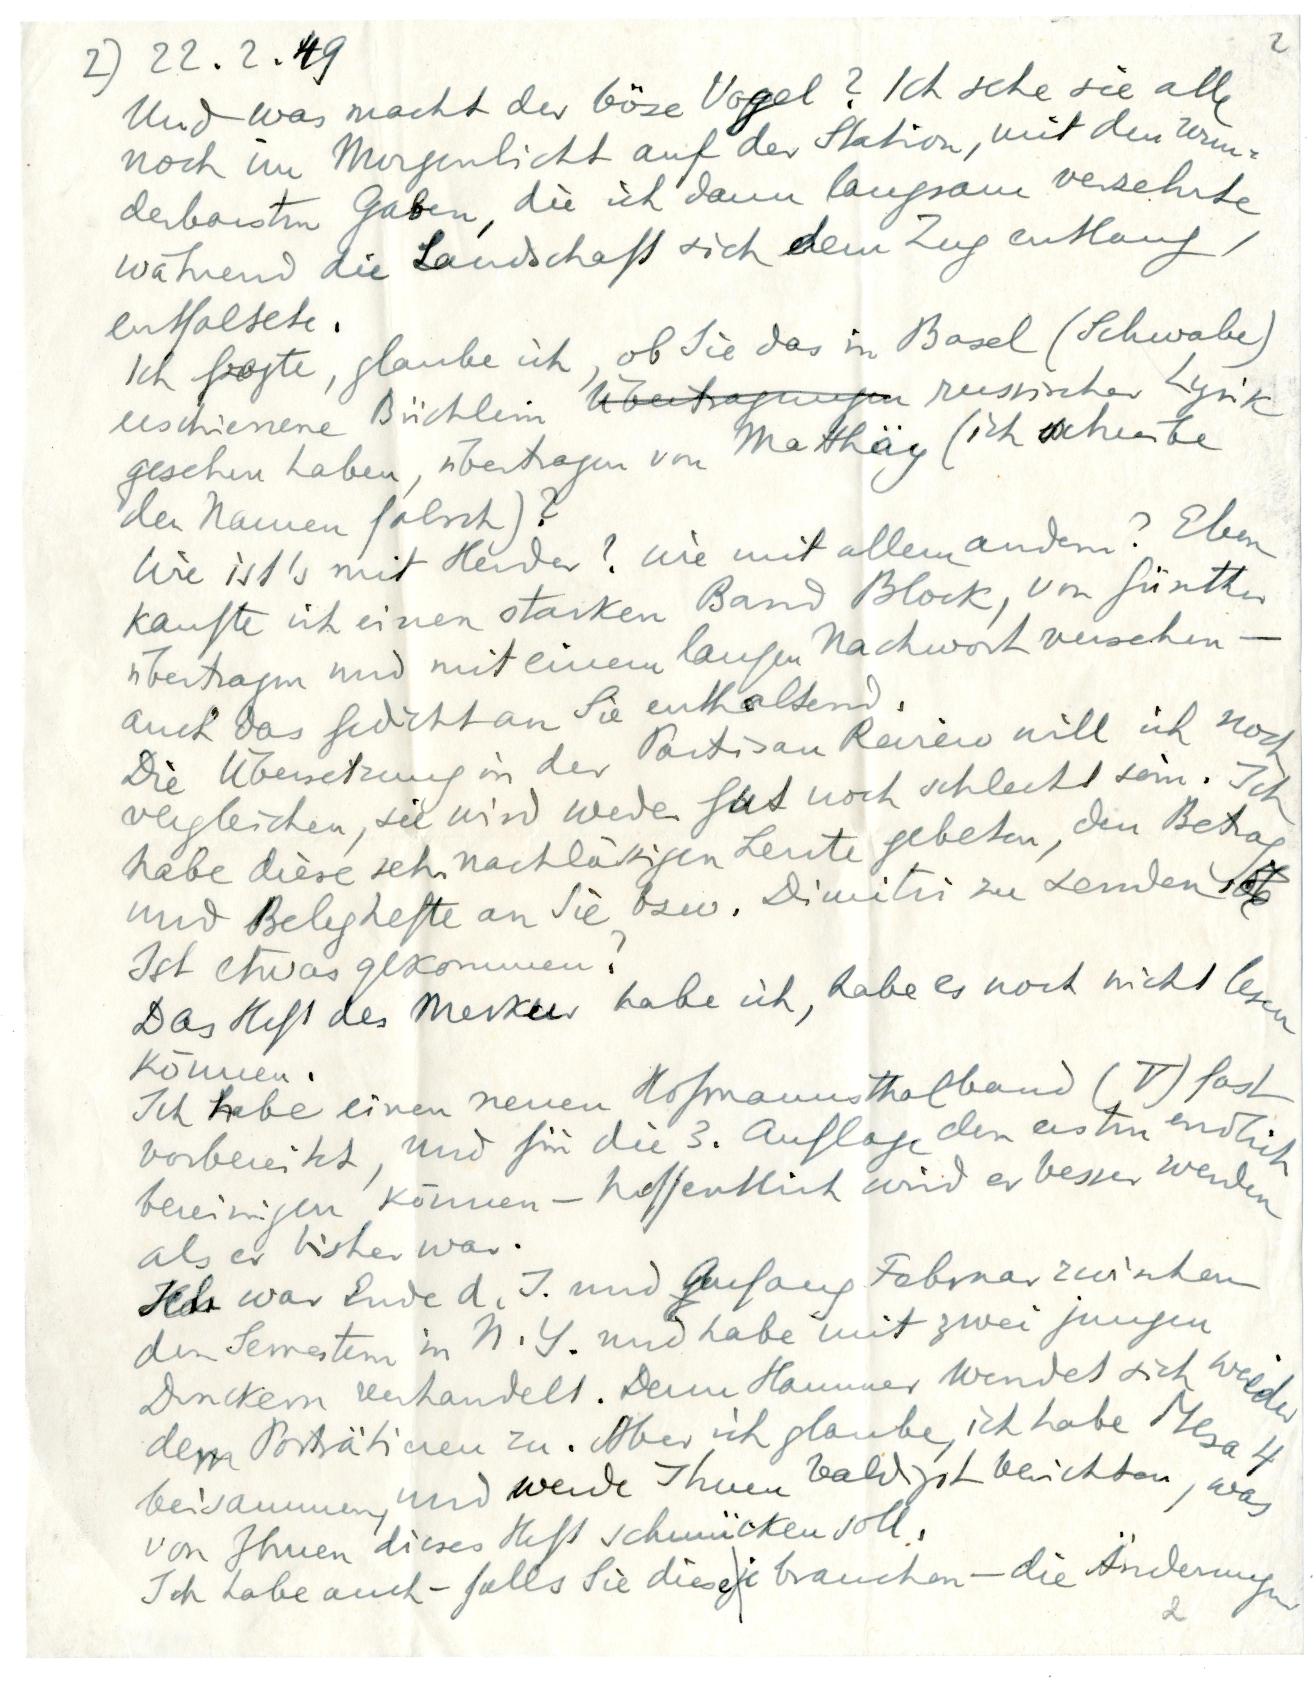 2) 22.2.49
2
Und was macht der böse Vogel? Ich sehe sie alle
noch im Morgenlicht auf der Station, mit den wun-
derbarsten Gaben, die ich dann langsam verzehrte,
während die Landschaft sich dem Zug entlang
entfaltete.
Ich fragte, glaube ich, ob Sie das in Basel (Schwabe)
erschienene Büchlein Übertragungen russischer Lyrik
gesehen haben, übertragen von Matthäy (ich schreibe
den Namen falsch)?
Wie ist's mit Herder? Wie mit allem andern? Eben
kaufte ich einen starken Band Block, von Günther
übertragen und mit einem langen Nachwort versehen –
auch das Gedicht an Sie enthaltend.
Die Übersetzung in der Partisan Review will ich noch
vergleichen, sie wird weder gut noch schlecht sein. Ich
habe diese sehr nachlässigen Leute gebeten, den Betrag
und Beleghefte an Sie bzw. Dimitri zu senden
Ist etwas gekommen?
Das Heft des Merkur habe ich, habe es noch nicht lesen
können.
Ich habe einen neuen Hofmannsthalband (V) fast
vorbereitet, und für die 3. Auflage den ersten endlich
bereinigen können – hoffentlich wird er besser werden
als er bisher war.
Ich war Ende d. J. und Anfang Februar zwischen
den Semestern in N.Y. und habe mit zwei jungen
Druckern verhandelt. Denn Hammer wendet sich wieder
dem Porträtieren zu. Aber ich glaube, ich habe Mesa 4
beisammen, und werde Ihnen baldigst berichten, was
von Ihnen dieses Heft schmücken soll.
Ich habe auch – falls Sie diese je brauchen – die Änderungen
2